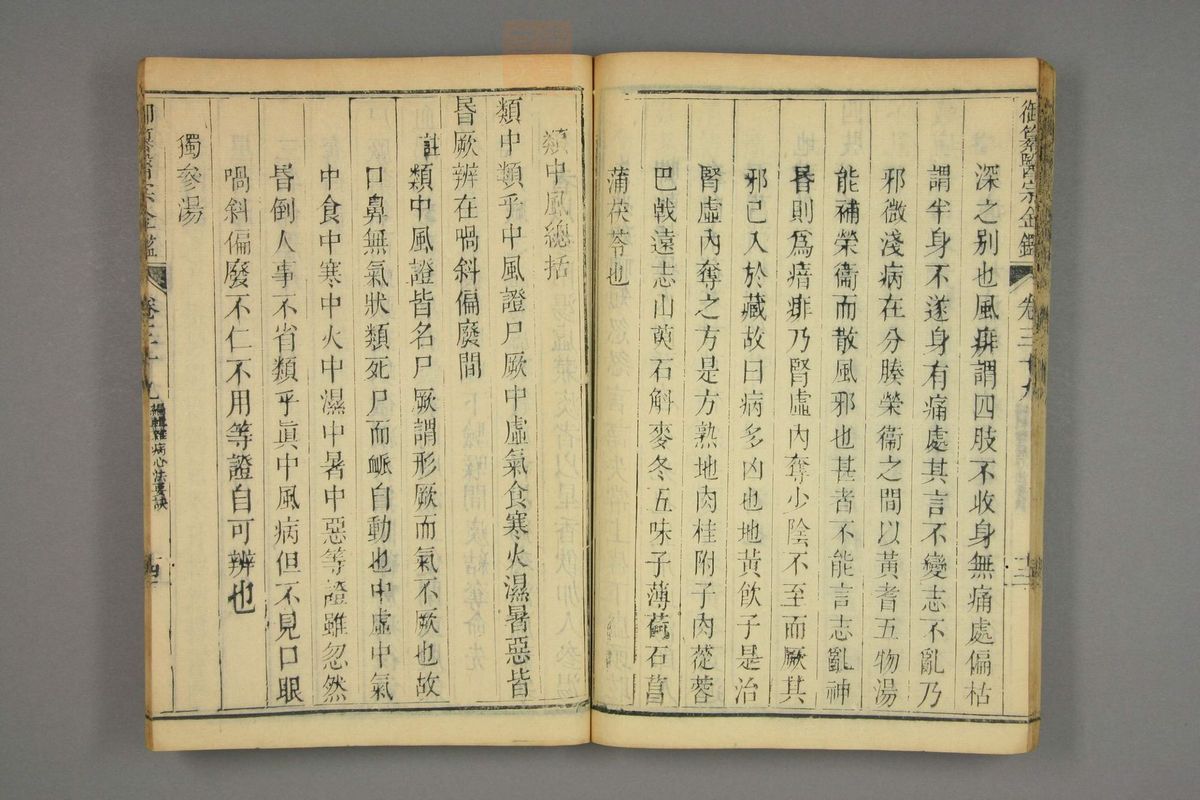 御纂醫宗金鑑 卷三十九
深之别也風痱謂四肢不收身無痛處偏枯
謂半身不遂身有痛處其言不變志不亂乃
邪微淺病在分腠榮衞之間以黃耆五物湯
能補榮衞而散風邪也甚者不能言志亂神
昬則為瘖痱乃腎虛內奪少陰不至而厥其
邪已入於藏故曰病多凶也地黃飲子是治
腎虛內奪之方是方熟地肉桂附子肉蓯蓉
巴戟遠志山萸石斛麥冬五味子薄荷石菖
蒲茯苓也
類中風總括
類中類乎中風證尸厥中虛氣食寒火濕暑惡皆
昬厥辨在喎斜偏廢間
註類中風證皆名尸厥謂形厥而氣不厥也故
口鼻無氣狀類死尸而脈自動也中虛中氣
中食中寒中火中濕中暑中惡等證雖忽然
昬倒人事不省類乎眞中風病但不見口眼
喎斜偏廢不仁不用等證自可辨也
獨參湯
御纂醫宗金鑑 卷三十九 編輯雜病心法要訣 十四